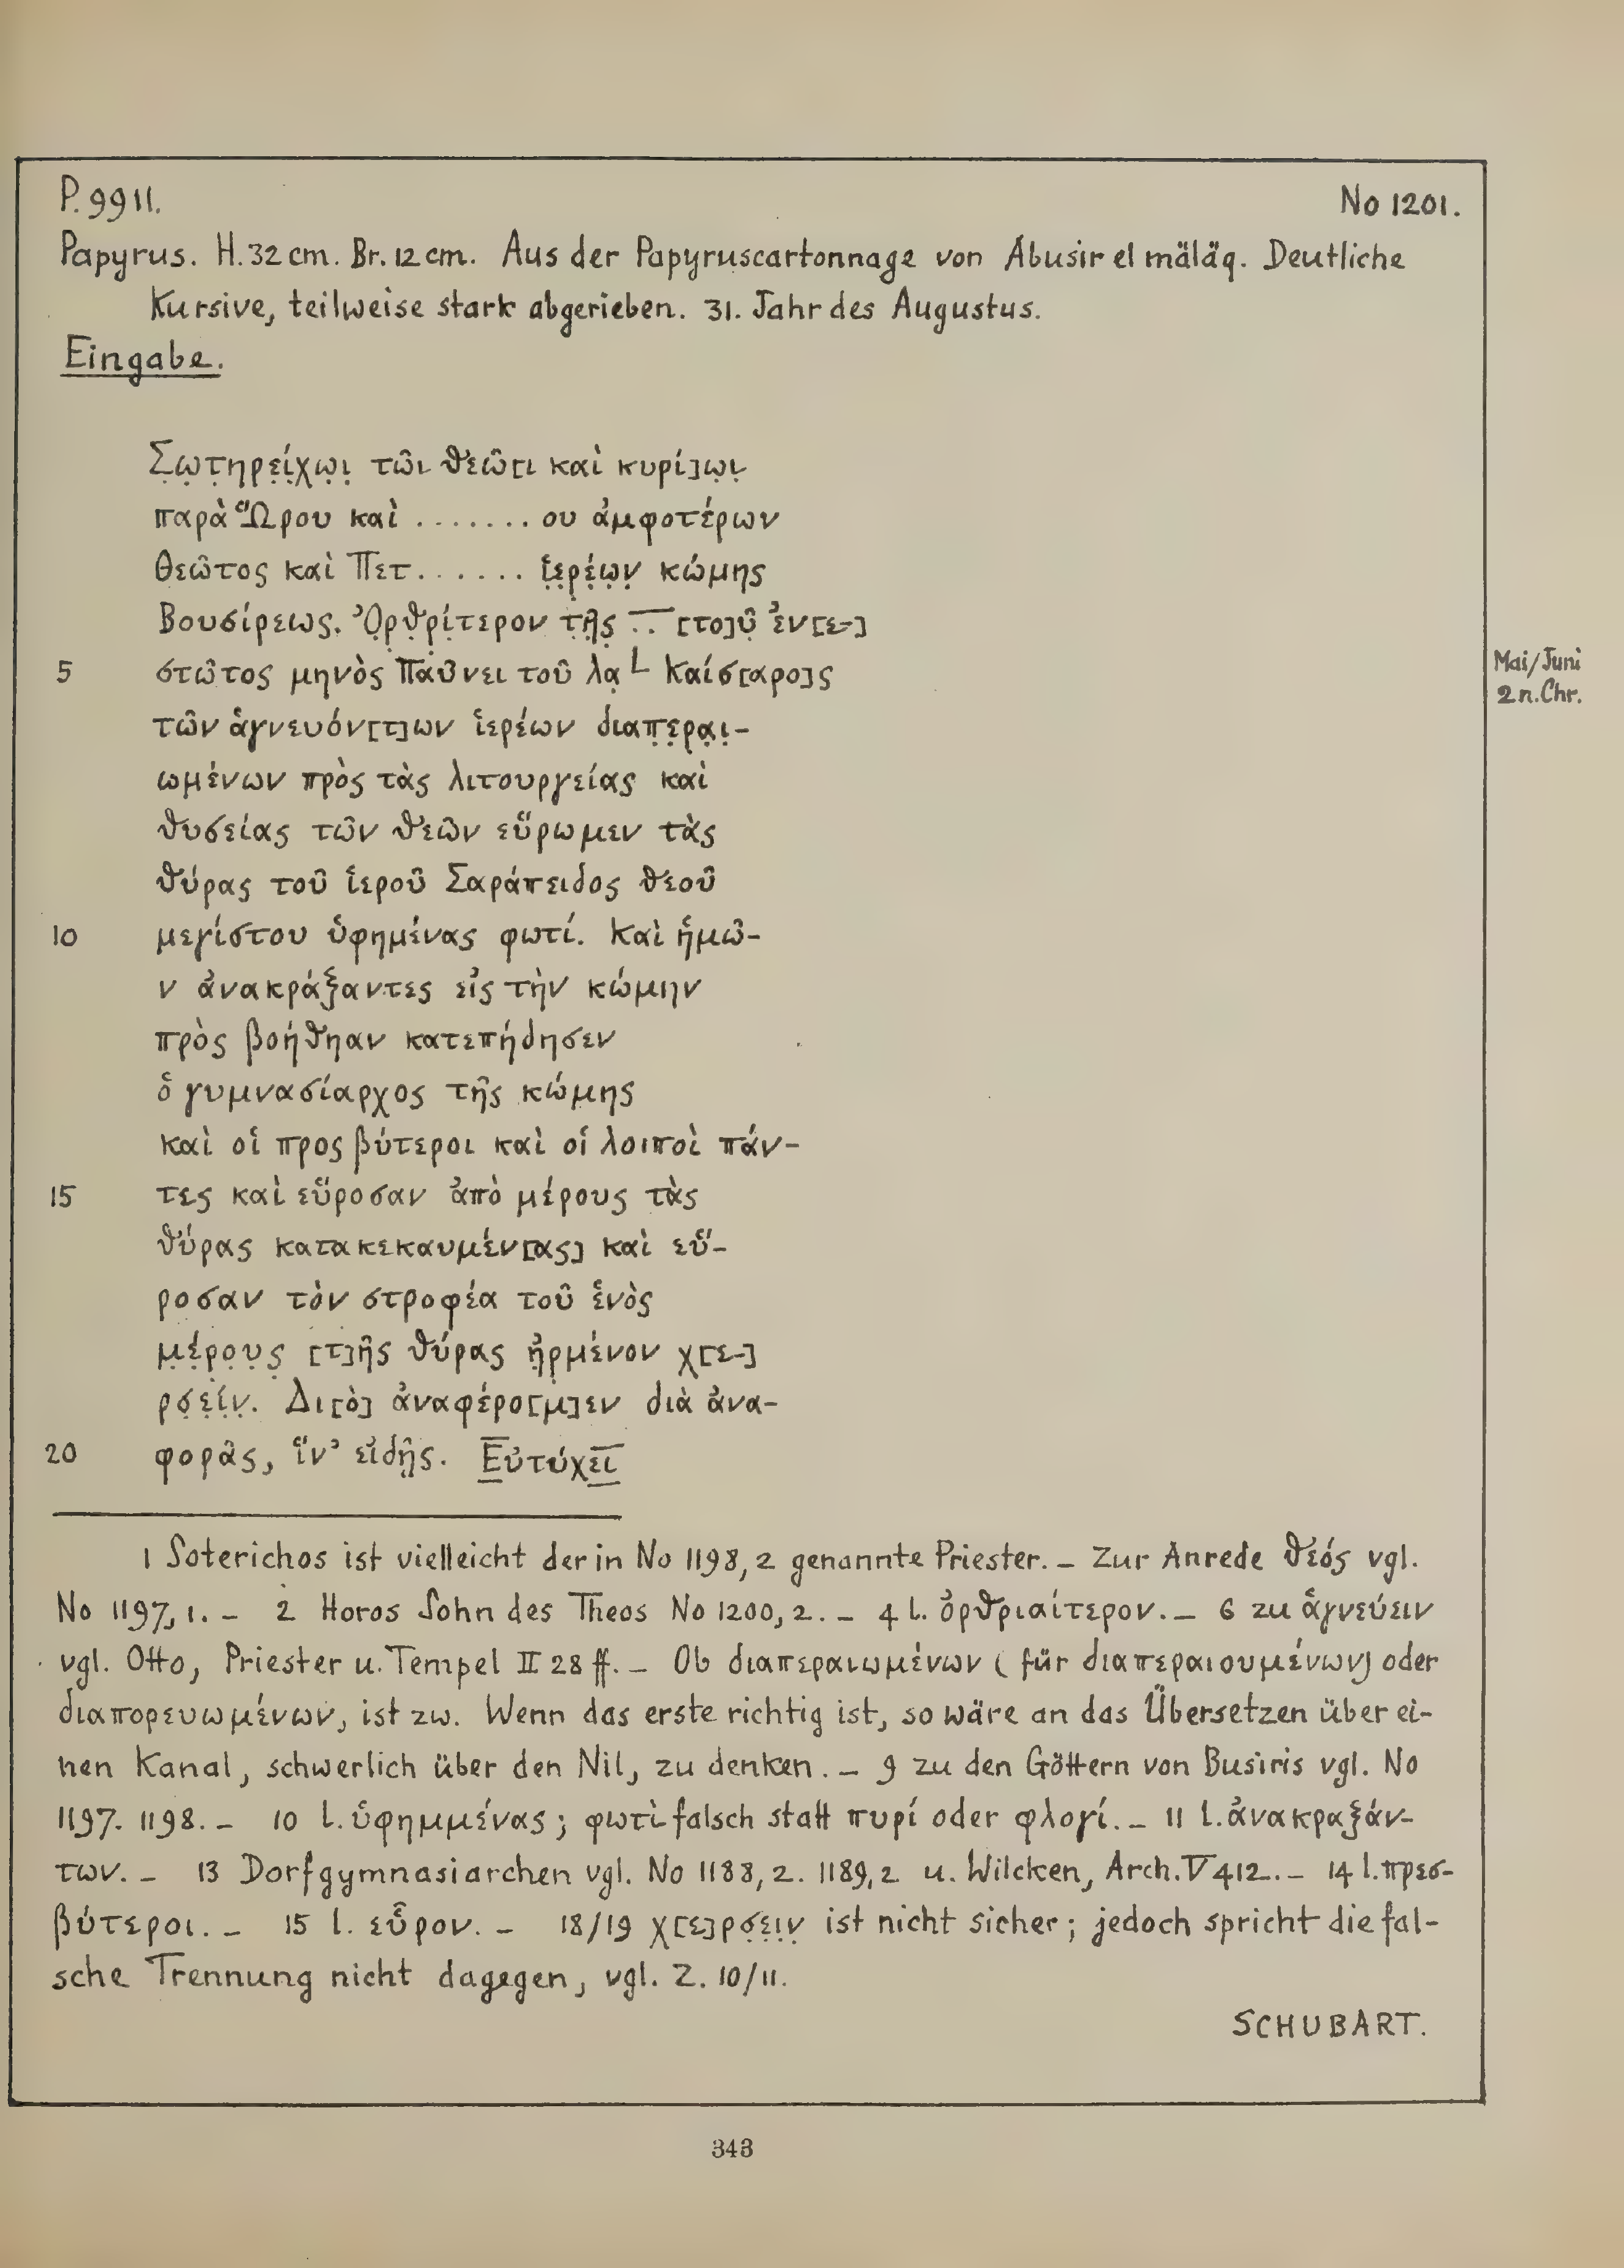 P. 9911. No 1201.
Papyrus. H. 32 cm. Br. 12 cm. Aus der Papyruscartonnage von Abusir el mäläq. Deutliche
Kursive, teilweise stark abgerieben. 31. Jahr des Augustus.
Eingabe.
Σ̣ω̣τ̣ηρ̣ε̣ί̣χ̣ω̣ι̣ τῶι θεῶ[ι καὶ κυρί]ω̣ι̣
παρὰ Ὥρου καὶ ....... ου ἀμφοτέρων
Θεῶτος καὶ Πετ...... ἱ̣ε̣ρ̣έ̣ω̣ν̣ κώμης
Βουσίρεως. Ὀ̣ρ̣θ̣ρ̣ί̣τερον τ̣ῆ̣ς̣ .. [το]ῦ̣ ἐν[ε-]
5 στῶτος μηνὸς Παῦνει τοῦ λα̣ L Καίσ[αρο]ς
Mai/Juni
2 n. Chr.
τῶν ἁγνευόν[τ]ων ἱερέων διαπ̣ε̣ρ̣α̣ι̣-
ωμένων πρὸς τὰς λιτουργείας καὶ
θυσείας τῶν θεῶν εὕρωμεν τὰς
θύρας τοῦ ἱεροῦ Σαράπειδος θεοῦ
10 μεγίστου ὑφημένας φωτί. Καὶ ἡμῶ-
ν ἀνακράξαντες εἰς τὴν κώμην
πρὸς βοήθηαν κατεπήδησεν
ὁ γυμνασίαρχος τῆς κώμης
καὶ οἱ προσβύτεροι καὶ οἱ λοιποὶ πάν-
15 τες καὶ εὕροσαν ἀπὸ μέρους τὰς
θύρας κατακεκαυμέν[ας] καὶ εὕ-
ροσαν τὸν στροφέα τοῦ ἑνὸς
μ̣έ̣ρ̣ο̣υ̣ς̣ [τ]ῆς θύρας ἠ̣ρμένον χ[ε-]
ρσ̣ε̣ί̣ν̣. Δι[ὸ] ἀναφέρο[μ]εν διὰ ἀνα-
20 φορᾶς, ἵν' εἰδῇ̣ς. Εὐτύχει
1 Soterichos ist vielleicht der in No 1198, 2 genannte Priester. – Zur Anrede θεός vgl.
No 1197, 1. – 2 Horos Sohn des Theos No 1200, 2. – 4 l. ὀρθριαίτερον. – 6 zu ἁγνεύειν
vgl. Otto, Priester u. Tempel II 28 ff. – Ob διαπεραιωμένων (für διαπεραιουμένων) oder
διαπορευωμένων, ist zw. Wenn das erste richtig ist, so wäre an das Übersetzen über ei-
nen Kanal, schwerlich über den Nil, zu denken. – 9 zu den Göttern von Busiris vgl. No
1197. 1198. – 10 l. ὑφημμένας; φωτὶ falsch statt πυρί oder φλογί. – 11 l. ἀνακραξάν-
των. – 13 Dorfgymnasiarchen vgl. No 1188, 2. 1189, 2 u. Wilcken, Arch. V 412. – 14 l. πρεσ-
βύτεροι. – 15 l. εὗρον. – 18/19 χ[ε]ρσ̣ε̣ι̣ν̣ ist nicht sicher; jedoch spricht die fal-
sche Trennung nicht dagegen, vgl. Z. 10/11.
SCHUBART.
343